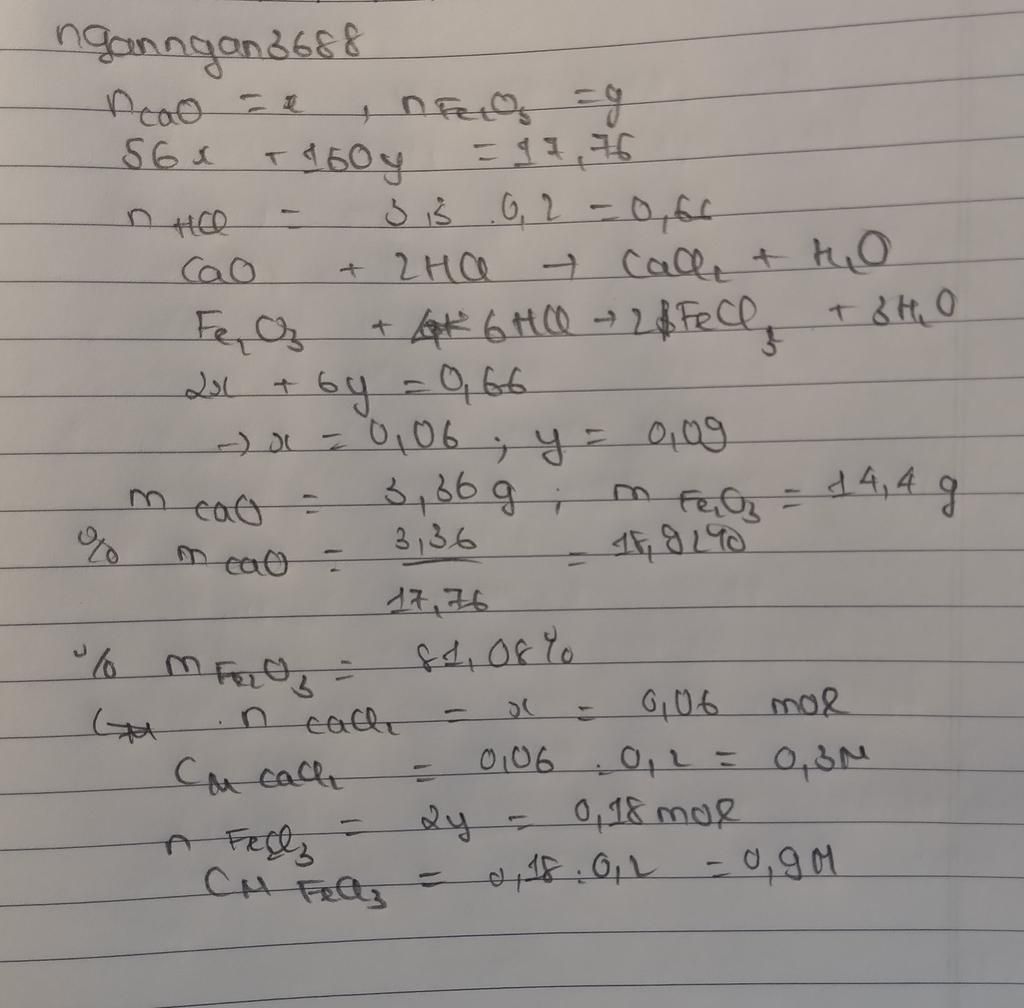 nganngan3688
nCaO = x , nFe2O3 = y
56x + 160y = 17,76
nHCl = 3,3 . 0,2 = 0,66
CaO + 2HCl → CaCl2 + H2O
Fe2O3 + 6HCl → 2FeCl3 + 3H2O
2x + 6y = 0,66
→ x = 0,06 ; y = 0,09
mCaO = 3,36g ; mFe2O3 = 14,4 g
% mCaO = 3,36 / 17,76 = 18,92%
% mFe2O3 = 81,08%
nCaCl2 = x = 0,06 mol
CM CaCl2 = 0,06 : 0,2 = 0,3M
nFeCl3 = 2y = 0,18 mol
CM FeCl3 = 0,18 : 0,2 = 0,9M